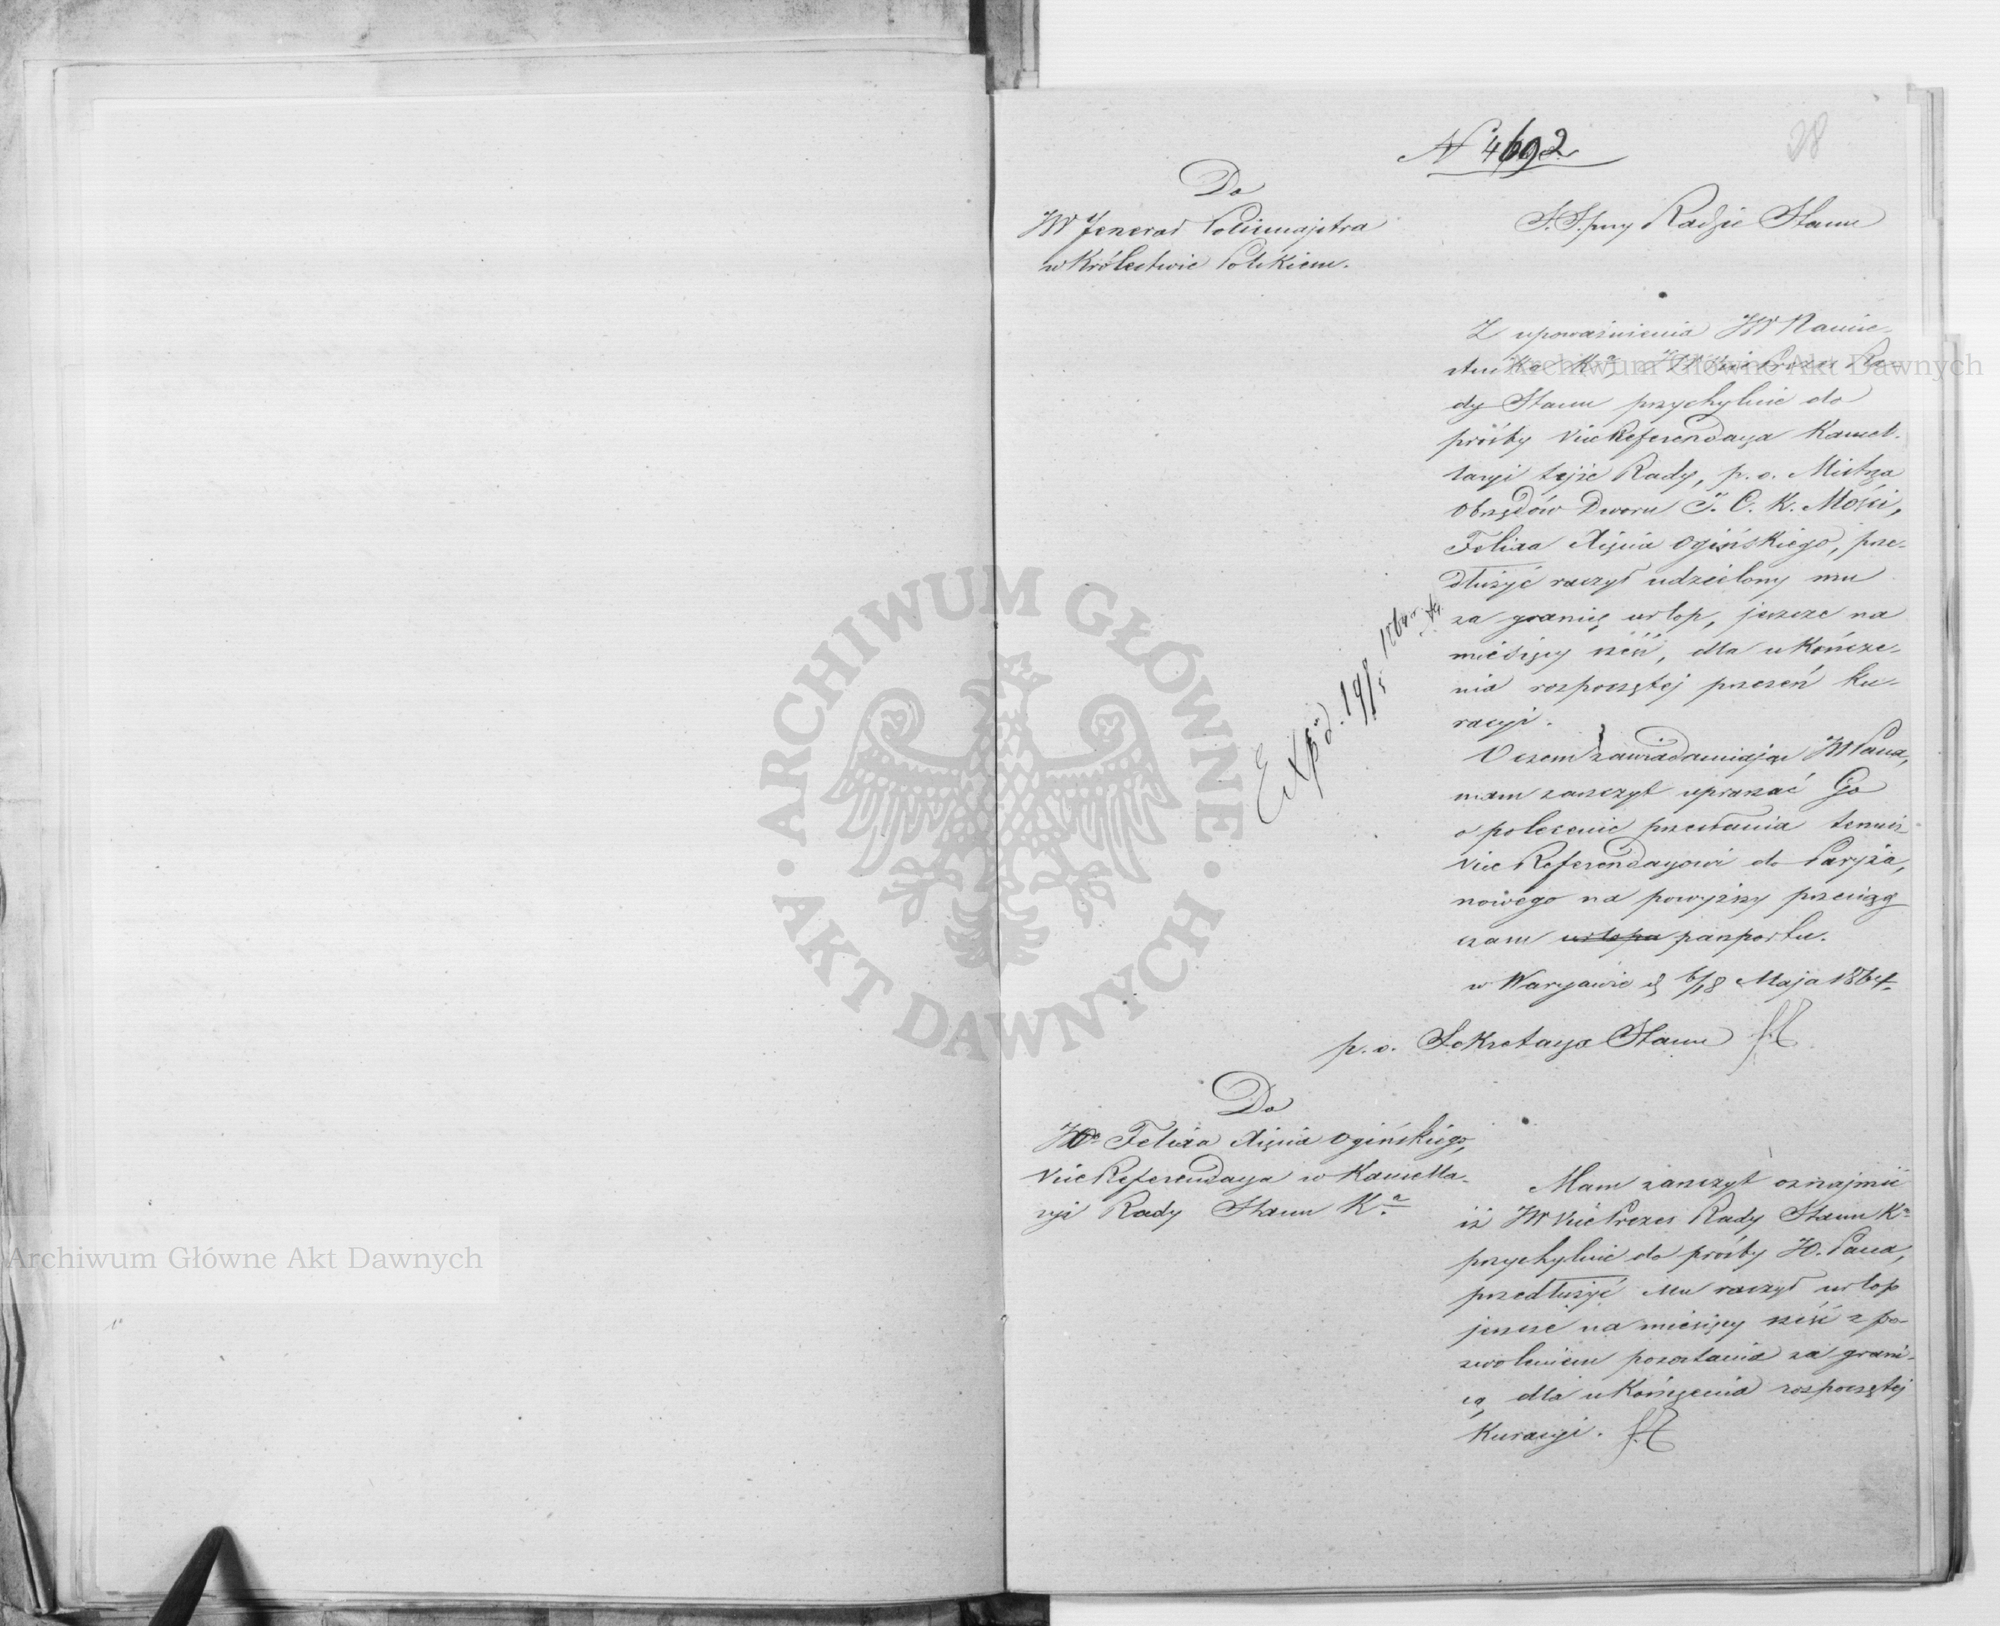 28
N 4692
Do
JW Jenerał Policmajstra
w Królestwie Polskiem.
S. S. przy Radzie Stanu
Z upoważnienia JW Namie-
stnika K^a, JW Vice Prezes Ra-
dy Stanu przychylnie do
prośby Vice Referendarza Kancel-
laryi tejże Rady, p. o. Mistrza
Obrzędów Dworu J. C. K. Mości,
Felixa Xięcia Ogińskiego, prze-
dłużyć raczył udzielony mu
za granicę urlop, jeszcze na
miesięcy sześć, dla ukończe-
nia rozpoczętej przezeń ku-
racyi.
Expd. 19/5 1864 r.
O czem zawiadamiając JW Pana,
mam zaszczyt upraszać Go
o polecenie przesłania temuż
Vice Referendarzowi do Paryża,
nowego na powyższy przeciąg
czasu urlopu paszportu.
w Warszawie d 6/18 Maja 1864.
p. o. Sekretarza Stanu
Do
JO Felixa Xięcia Ogińskiego,
Vice Referendarza w Kancella-
ryi Rady Stanu K^a
Mam zaszczyt oznajmić
iż JW Vice Prezes Rady Stanu K^a
przychylnie do prośby JO. Pana,
przedłużyć Mu raczył urlop
jeszcze na miesięcy sześć z po-
zwoleniem pozostania za grani-
cą, dla ukończenia rozpoczętej
Kuracyi.
Archiwum Główne Akt Dawnych
Archiwum Główne Akt Dawnych
ARCHIWUM GŁÓWNE
AKT DAWNYCH